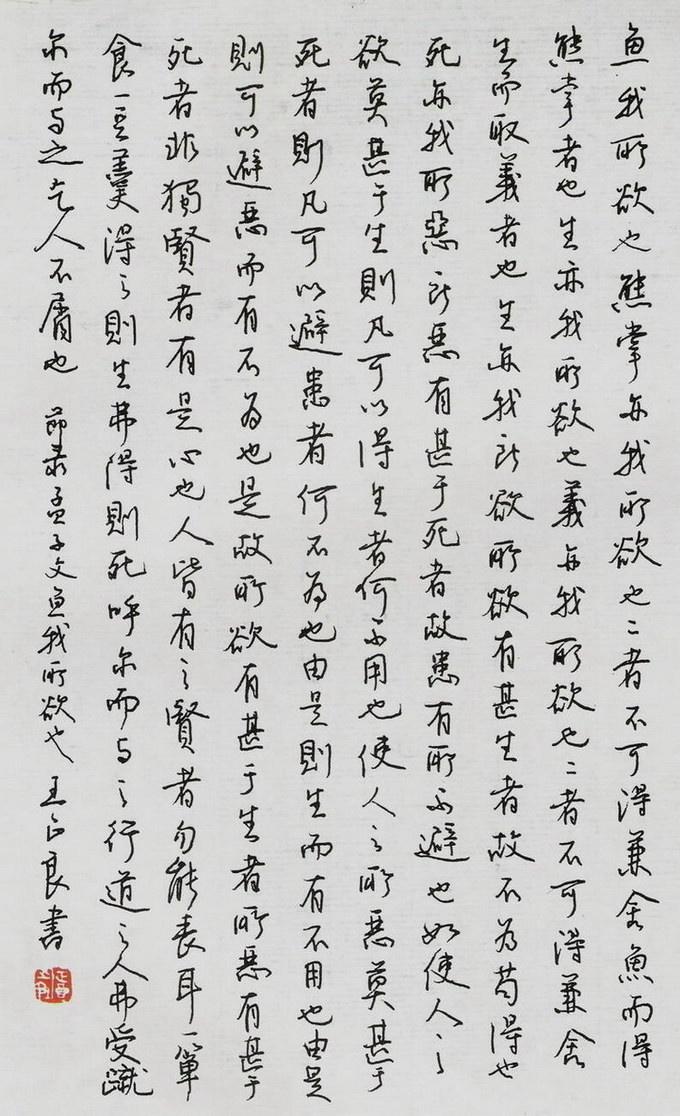 魚我所欲也熊掌亦我所欲也二者不可得兼舍魚而得
熊掌者也生亦我所欲也義亦我所欲也二者不可得兼舍
生而取義者也生亦我所欲所欲有甚生者故不为苟得也
死亦我所惡所惡有甚于死者故患有所不避也如使人之
欲莫甚于生則凡可以得生者何不用也使人之所惡莫甚于
死者則凡可以避患者何不为也由是則生而有不用也由是
則可以避惡而有不为也是故所欲有甚于生者所惡有甚于
死者非獨賢者有是心也人皆有之賢者勿能丧耳一簞
食一豆羹得之則生弗得則死呼尔而与之行道之人弗受蹴
尔而与之乞人不屑也 節录孟子文魚我所欲也 王正良書